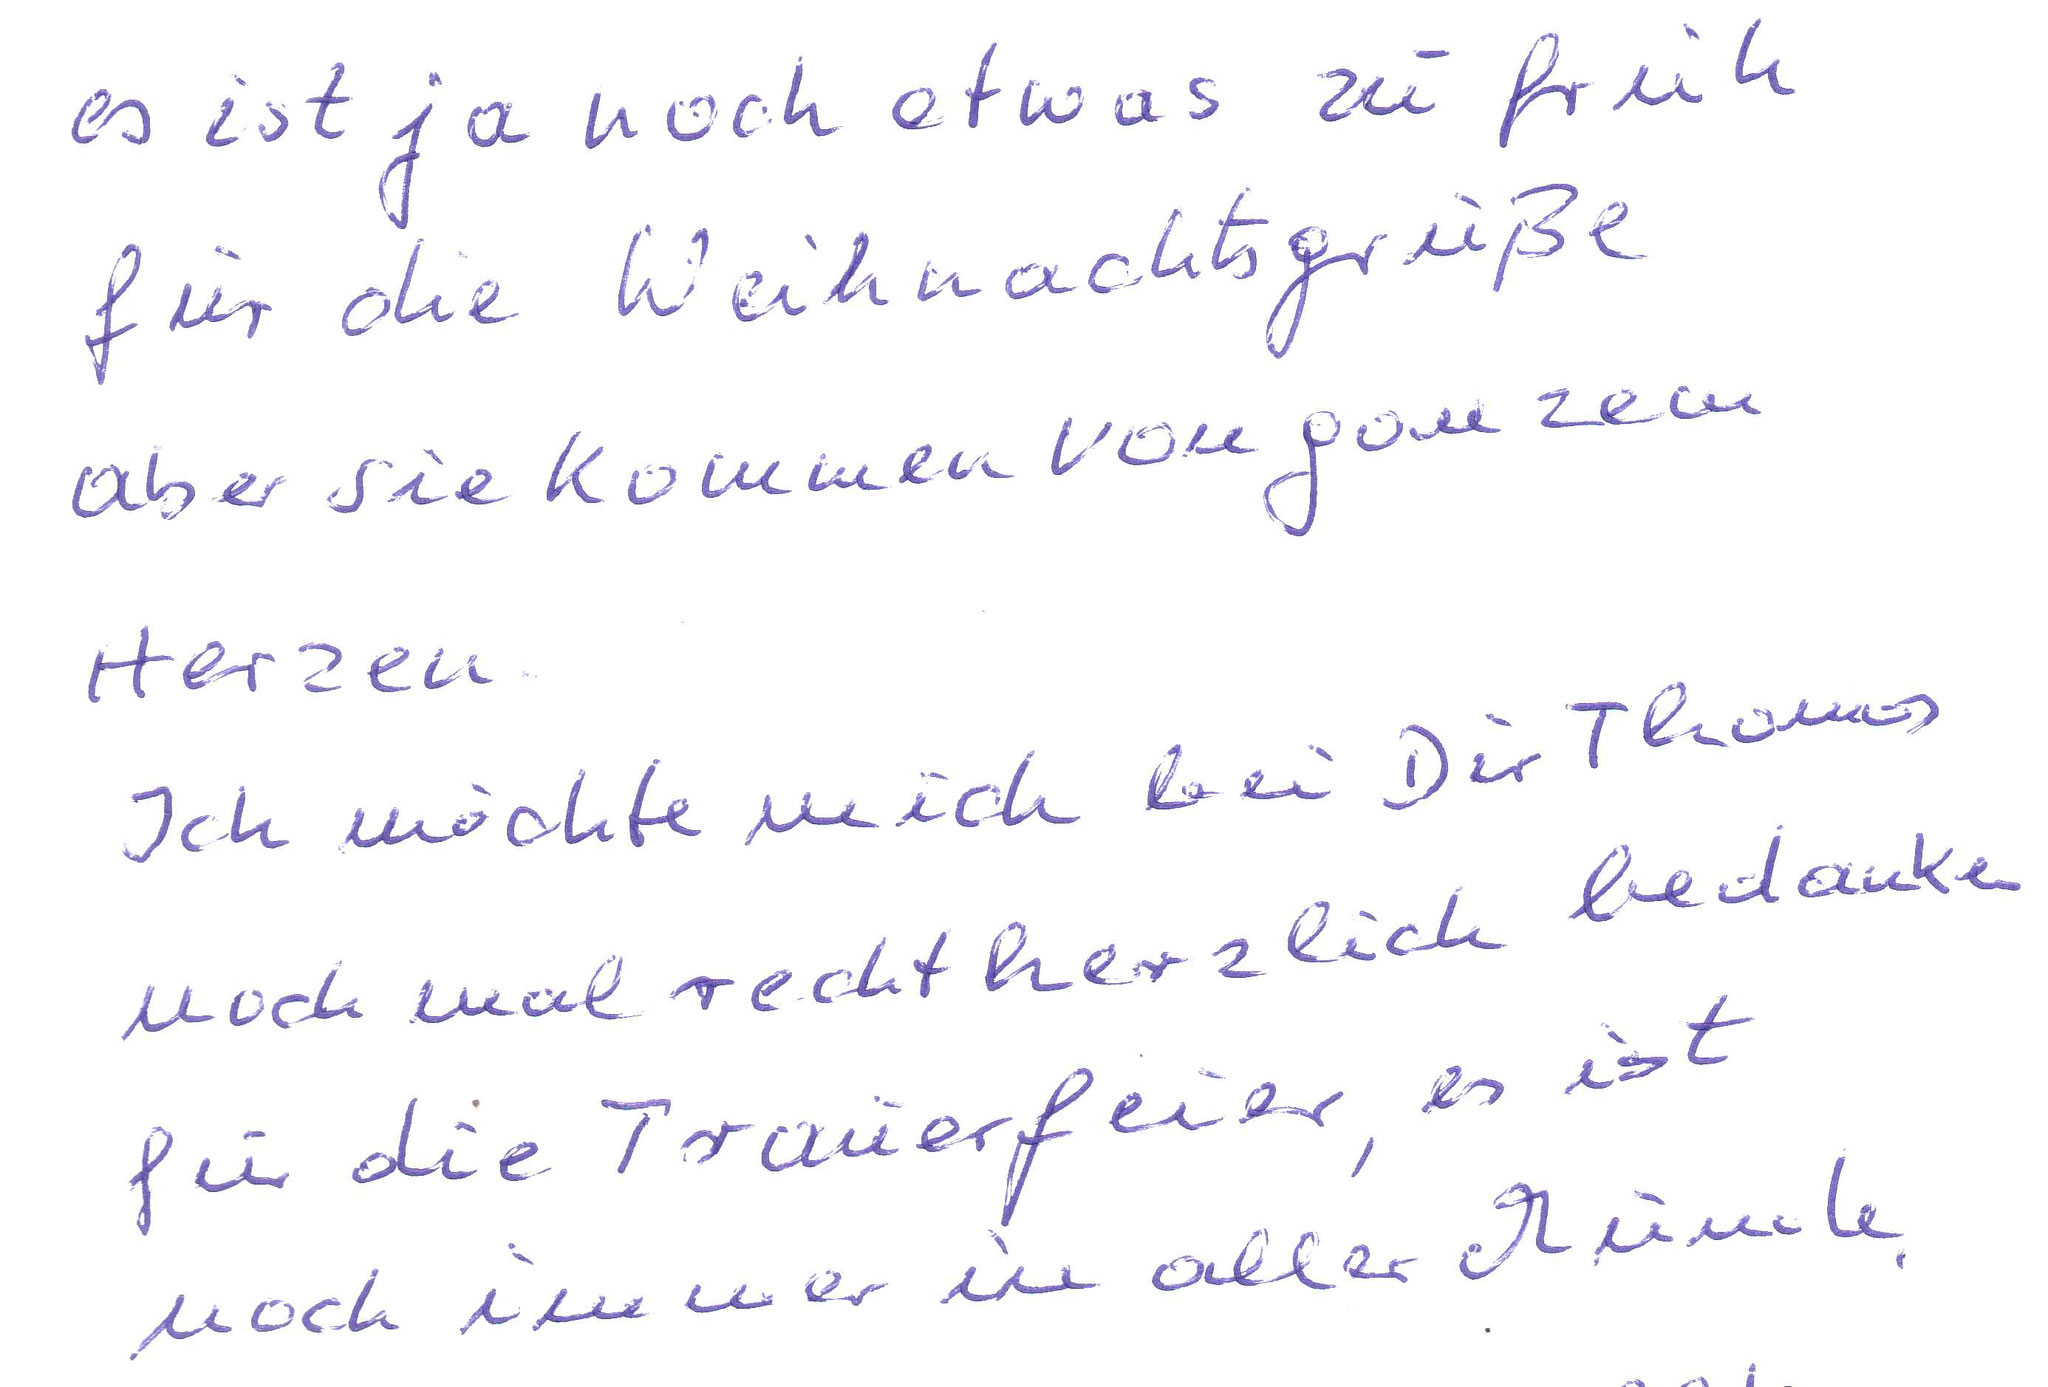 es ist ja noch etwas zu früh
für die Weihnachtsgrüße
aber sie kommen von ganzem
Herzen.
Ich möchte mich bei Dir Thomas
noch mal recht herzlich bedanken
für die Trauerfeier, es ist
noch immer in aller Munde.